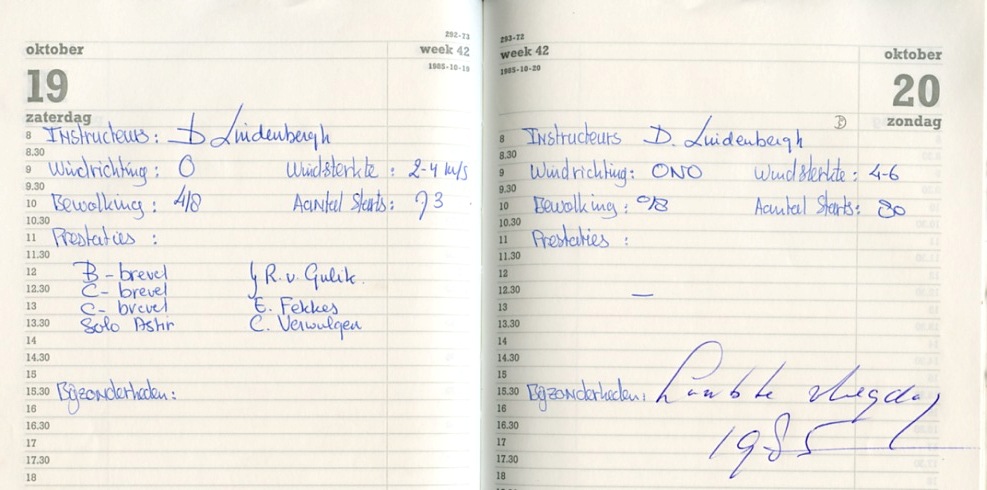 292-73
oktober week 42
1985-10-19
19
zaterdag
8 Instructeurs: D Luidenbergh
8.30
9 Windrichting: O Windsterkte: 2-4 m/s
9.30
10 Bewolking: 4/8 Aantal Starts: 73
10.30
11 Prestaties:
11.30
12 B-brevet R. v. Gulik.
12.30 C-brevet
13 C-brevet E. Fekkes
13.30 Solo Astir C. Verwulgen
14
14.30
15
15.30 Bijzonderheden:
16
16.30
17
17.30
18
293-72
week 42 oktober
1985-10-20
20
zondag
8 Instructeurs D. Luidenbergh
8.30
9 Windrichting: ONO Windsterkte: 4-6
9.30
10 Bewolking: 0/8 Aantal Starts: 80
10.30
11 Prestaties:
11.30
12
12.30 —
13
13.30
14
14.30
15
15.30 Bijzonderheden: Laatste vliegdag
16
16.30 1985
17
17.30
18